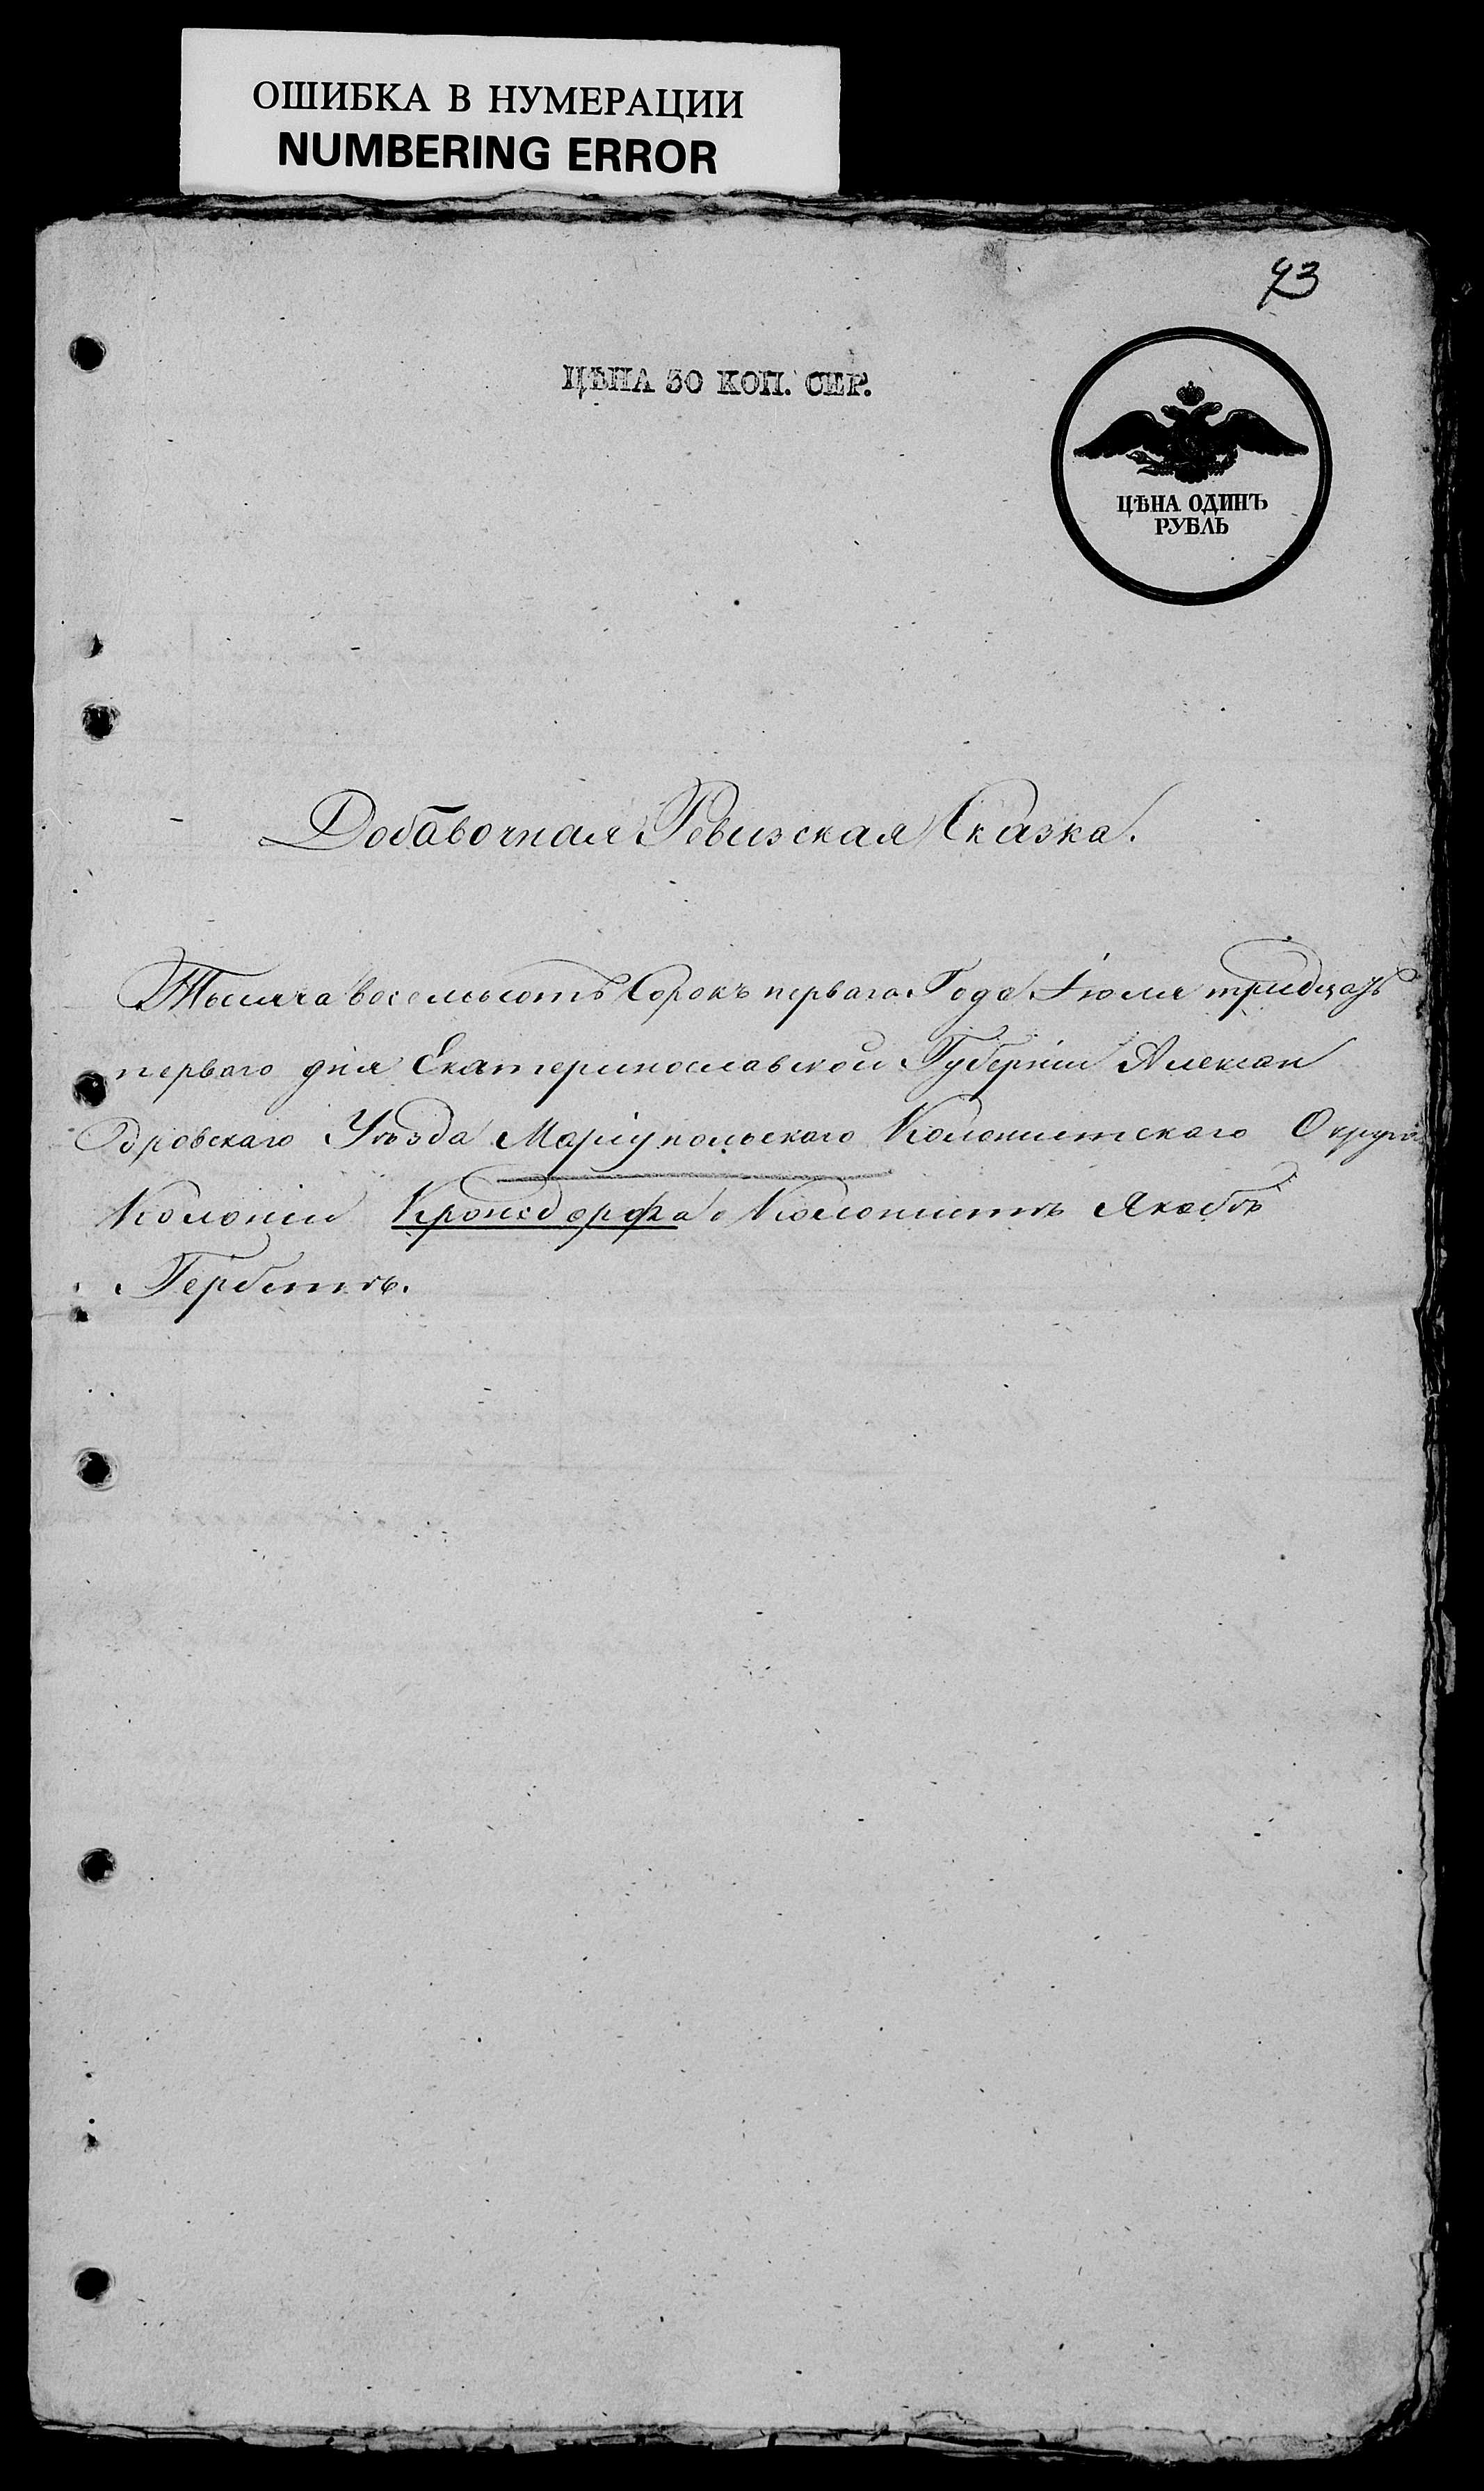 ОШИБКА В НУМЕРАЦИИ
NUMBERING ERROR
ЦѢНА 30 КОП. СЕР.
ЦѢНА ОДИНЪ
РУБЛЬ
Добавочная Ревизская Сказка.
Тысяча восемьсотъ Сорокъ перваго Года Іюля тридцать
перваго дня Екатеринославской Губерніи Алексан
дровскаго Уѣзда Маріупольскаго Колонистскаго Округа
Колоніи Кронсдорфа Колонистъ Якобъ